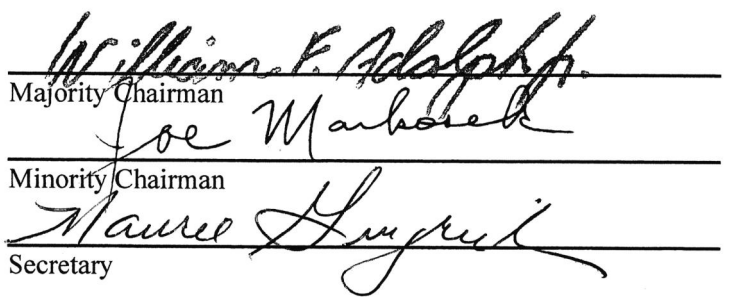 William F. Adolph Jr.
Majority Chairman
Joe Markosek
Minority Chairman
Mauree Gingrich
Secretary